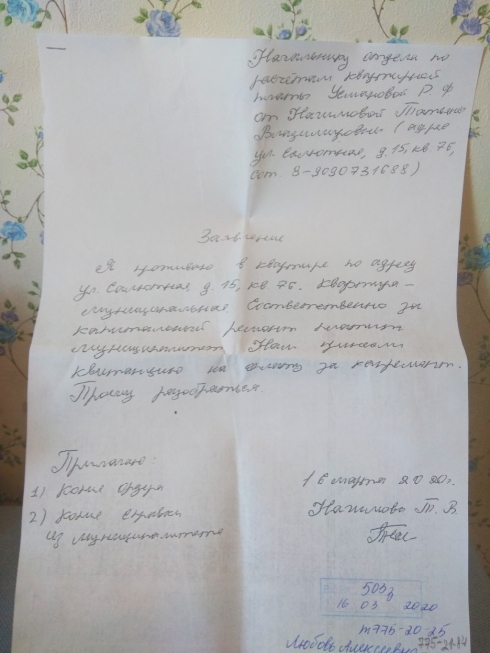 Начальнику отдела по
расчётам квартирной
платы Усмановой Р. Ф
от Нагимовой Татьяны
Владимировны (адрес
ул. Салютная, д. 15, кв. 76,
сот 8-9090731688)
Заявление
Я проживаю в квартире по адресу
ул. Салютная д. 15, кв. 76. Квартира -
муниципальная Соответственно за
капитальный ремонт платит
муниципалитет Нам прислали
квитанцию на оплату за капремонт.
Прошу разобраться.
Прилагаю:
1) Копие ордера
2) Копие справки
из муниципалитета
16 марта 2020г.
Нагимова Т. В.
16 03 2020
т775-20-25
Любовь Алексеевна
775-21-84